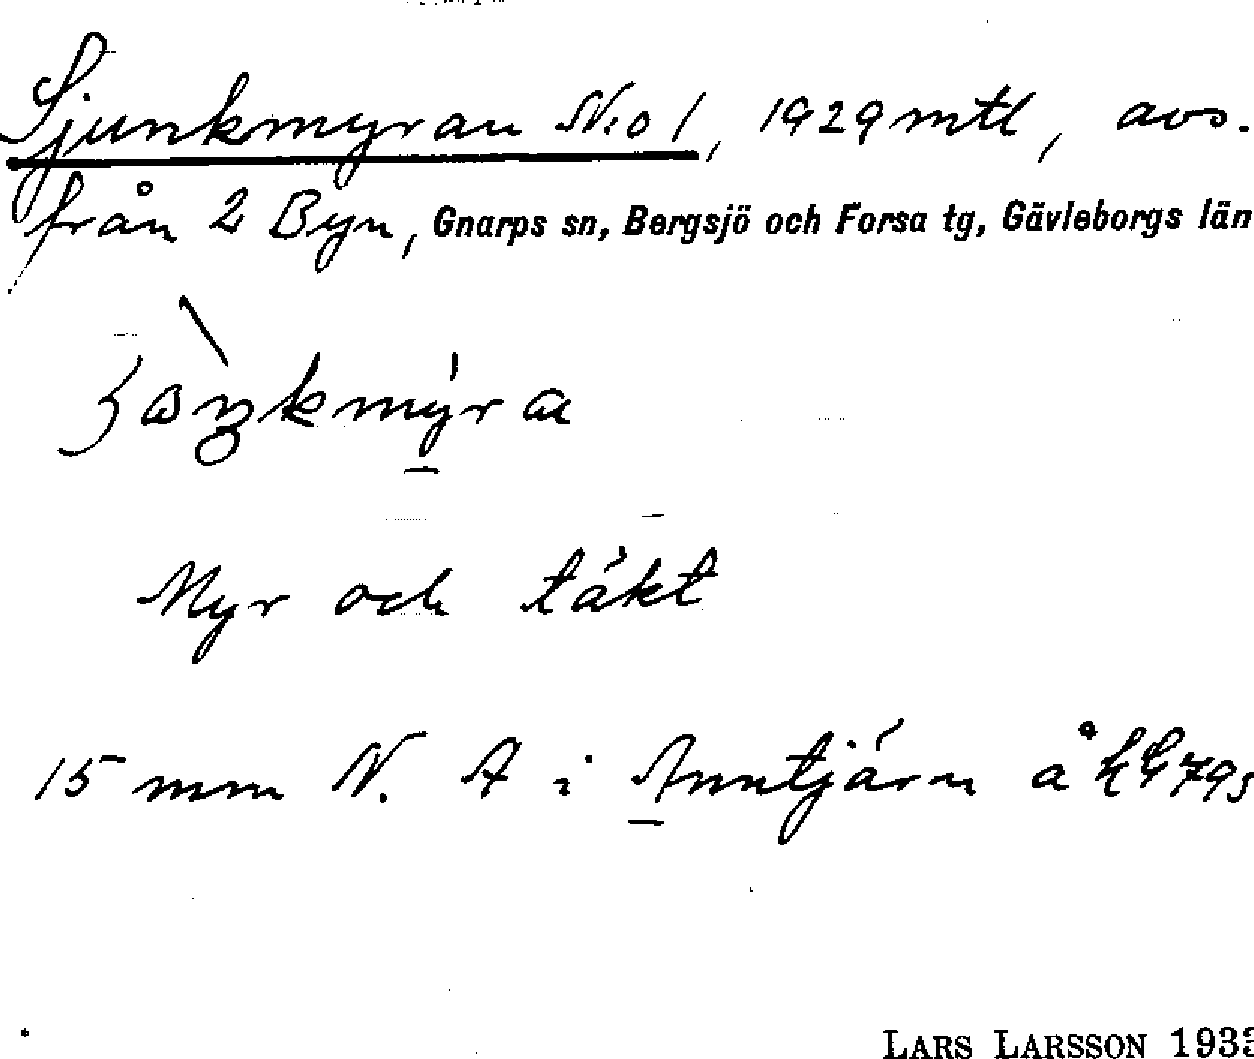 Sjunkmyran No 1, 1929 mtl, avs.
från 2 Byn, Gnarps sn, Bergsjö och Forsa tg, Gävleborgs län
Myr och täkt
15 mm N. A i Anntjärn å
LARS LARSSON 1933